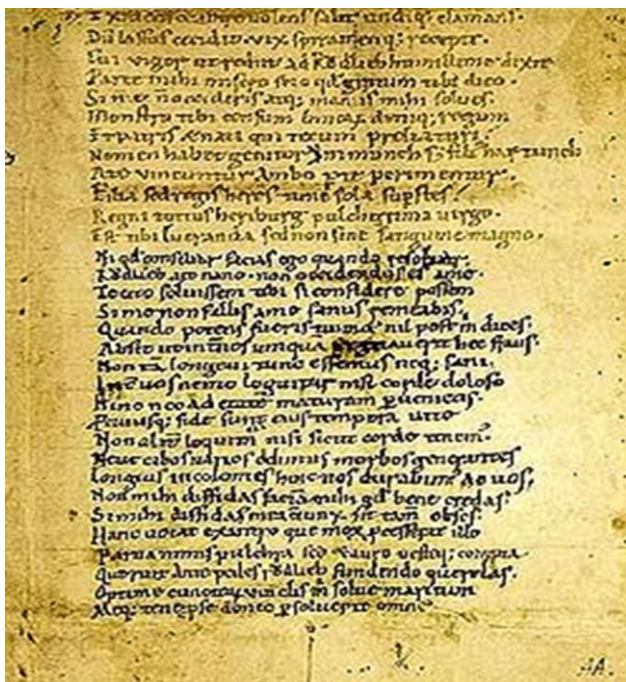 volens salit undiq; clamans.
Dū lassus cecidit. vix spiramenq; recepit.
Cui vigor ut rediit ad Rǒdlieb humillime dixit
Parce mihi misero scio qd gratum tibi dico.
Si me n̄ occideris atq; manus mihi solves.
Monstro tibi censum binorū dumq; regum
Et patris & nati qui tecum preliaturi.
Nomen habet genitor Immunch filius hartunch
A te vincuntur ambo perimentur.
Filia sed regis heres tunc sola supstes.
Regni totius heriburg pulcherrima virgo.
Est tibi lucranda sed non sine sanguine magno.
Ni qd consiliar facias ego quando resolvar.
Rǒdlieb ait nano. non occidendus es a me.
Te cito solvissem tibi si confidere possem
Si me non fallis a me sanus remeabis.
Quando potens fueris nil post m̄ dices.
Absit ut inter nos umquā regnaverit hec fraus.
Non tā longevi tunc essemus neq; sani.
Int̄ vos nemo loquitur nisi corde doloso
Hinc neq; ad etatē maturam pvenietis.
Pcuiusq; fide sunt eius tempora vite
Non alit̄ loquim̄ nisi sicut corde tenem̄.
Neve cibos varios edimus morbos generantes
Longius incolomes hinc nos durabim̄ ac vos,
Non mihi diffidas faciā mihi qd bene credas.
Si mihi diffidas mea coniunx sit tam̄ obses.
Hanc vocat ex antro que mox processit illo
Parva nimis pulchra sed & auro vesteq; compta
Que ruit ante pedes rǒdlieb fundendo querelas.
Optime cunctorū vinclis m̄ solve maritum
Meq; tene pse donec psolverit omne
AA.